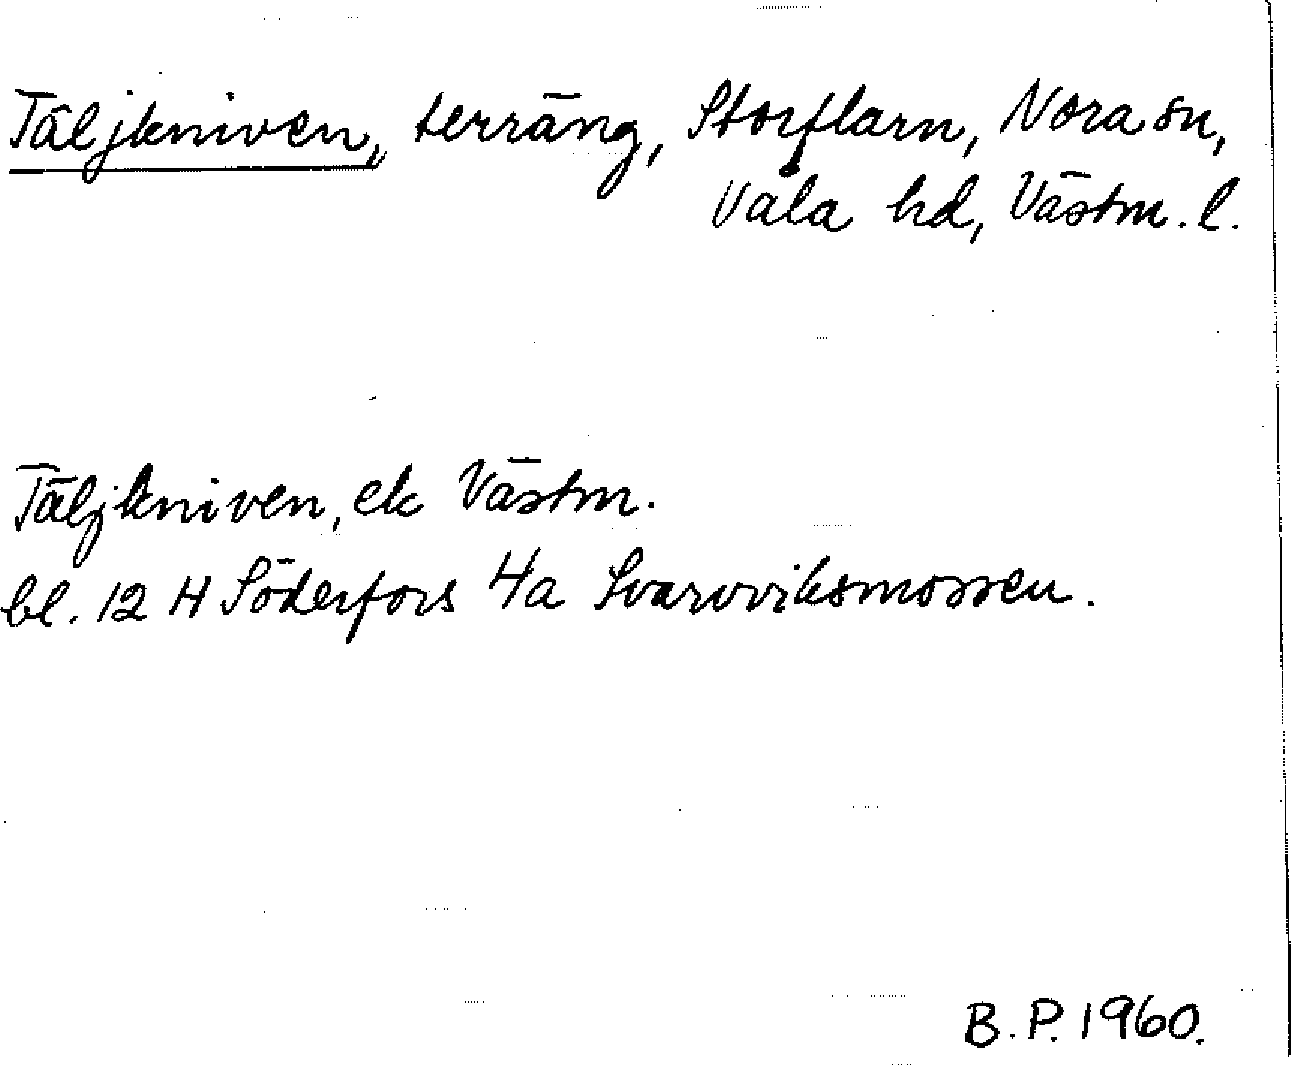 Täljkniven, terräng, Storflarn, Nora sn,
Våla hd, Västm. l.
Täljkniven, ek Västm.
bl. 12 H Söderfors 4a Svarvviksmossen.
B. P. 1960.